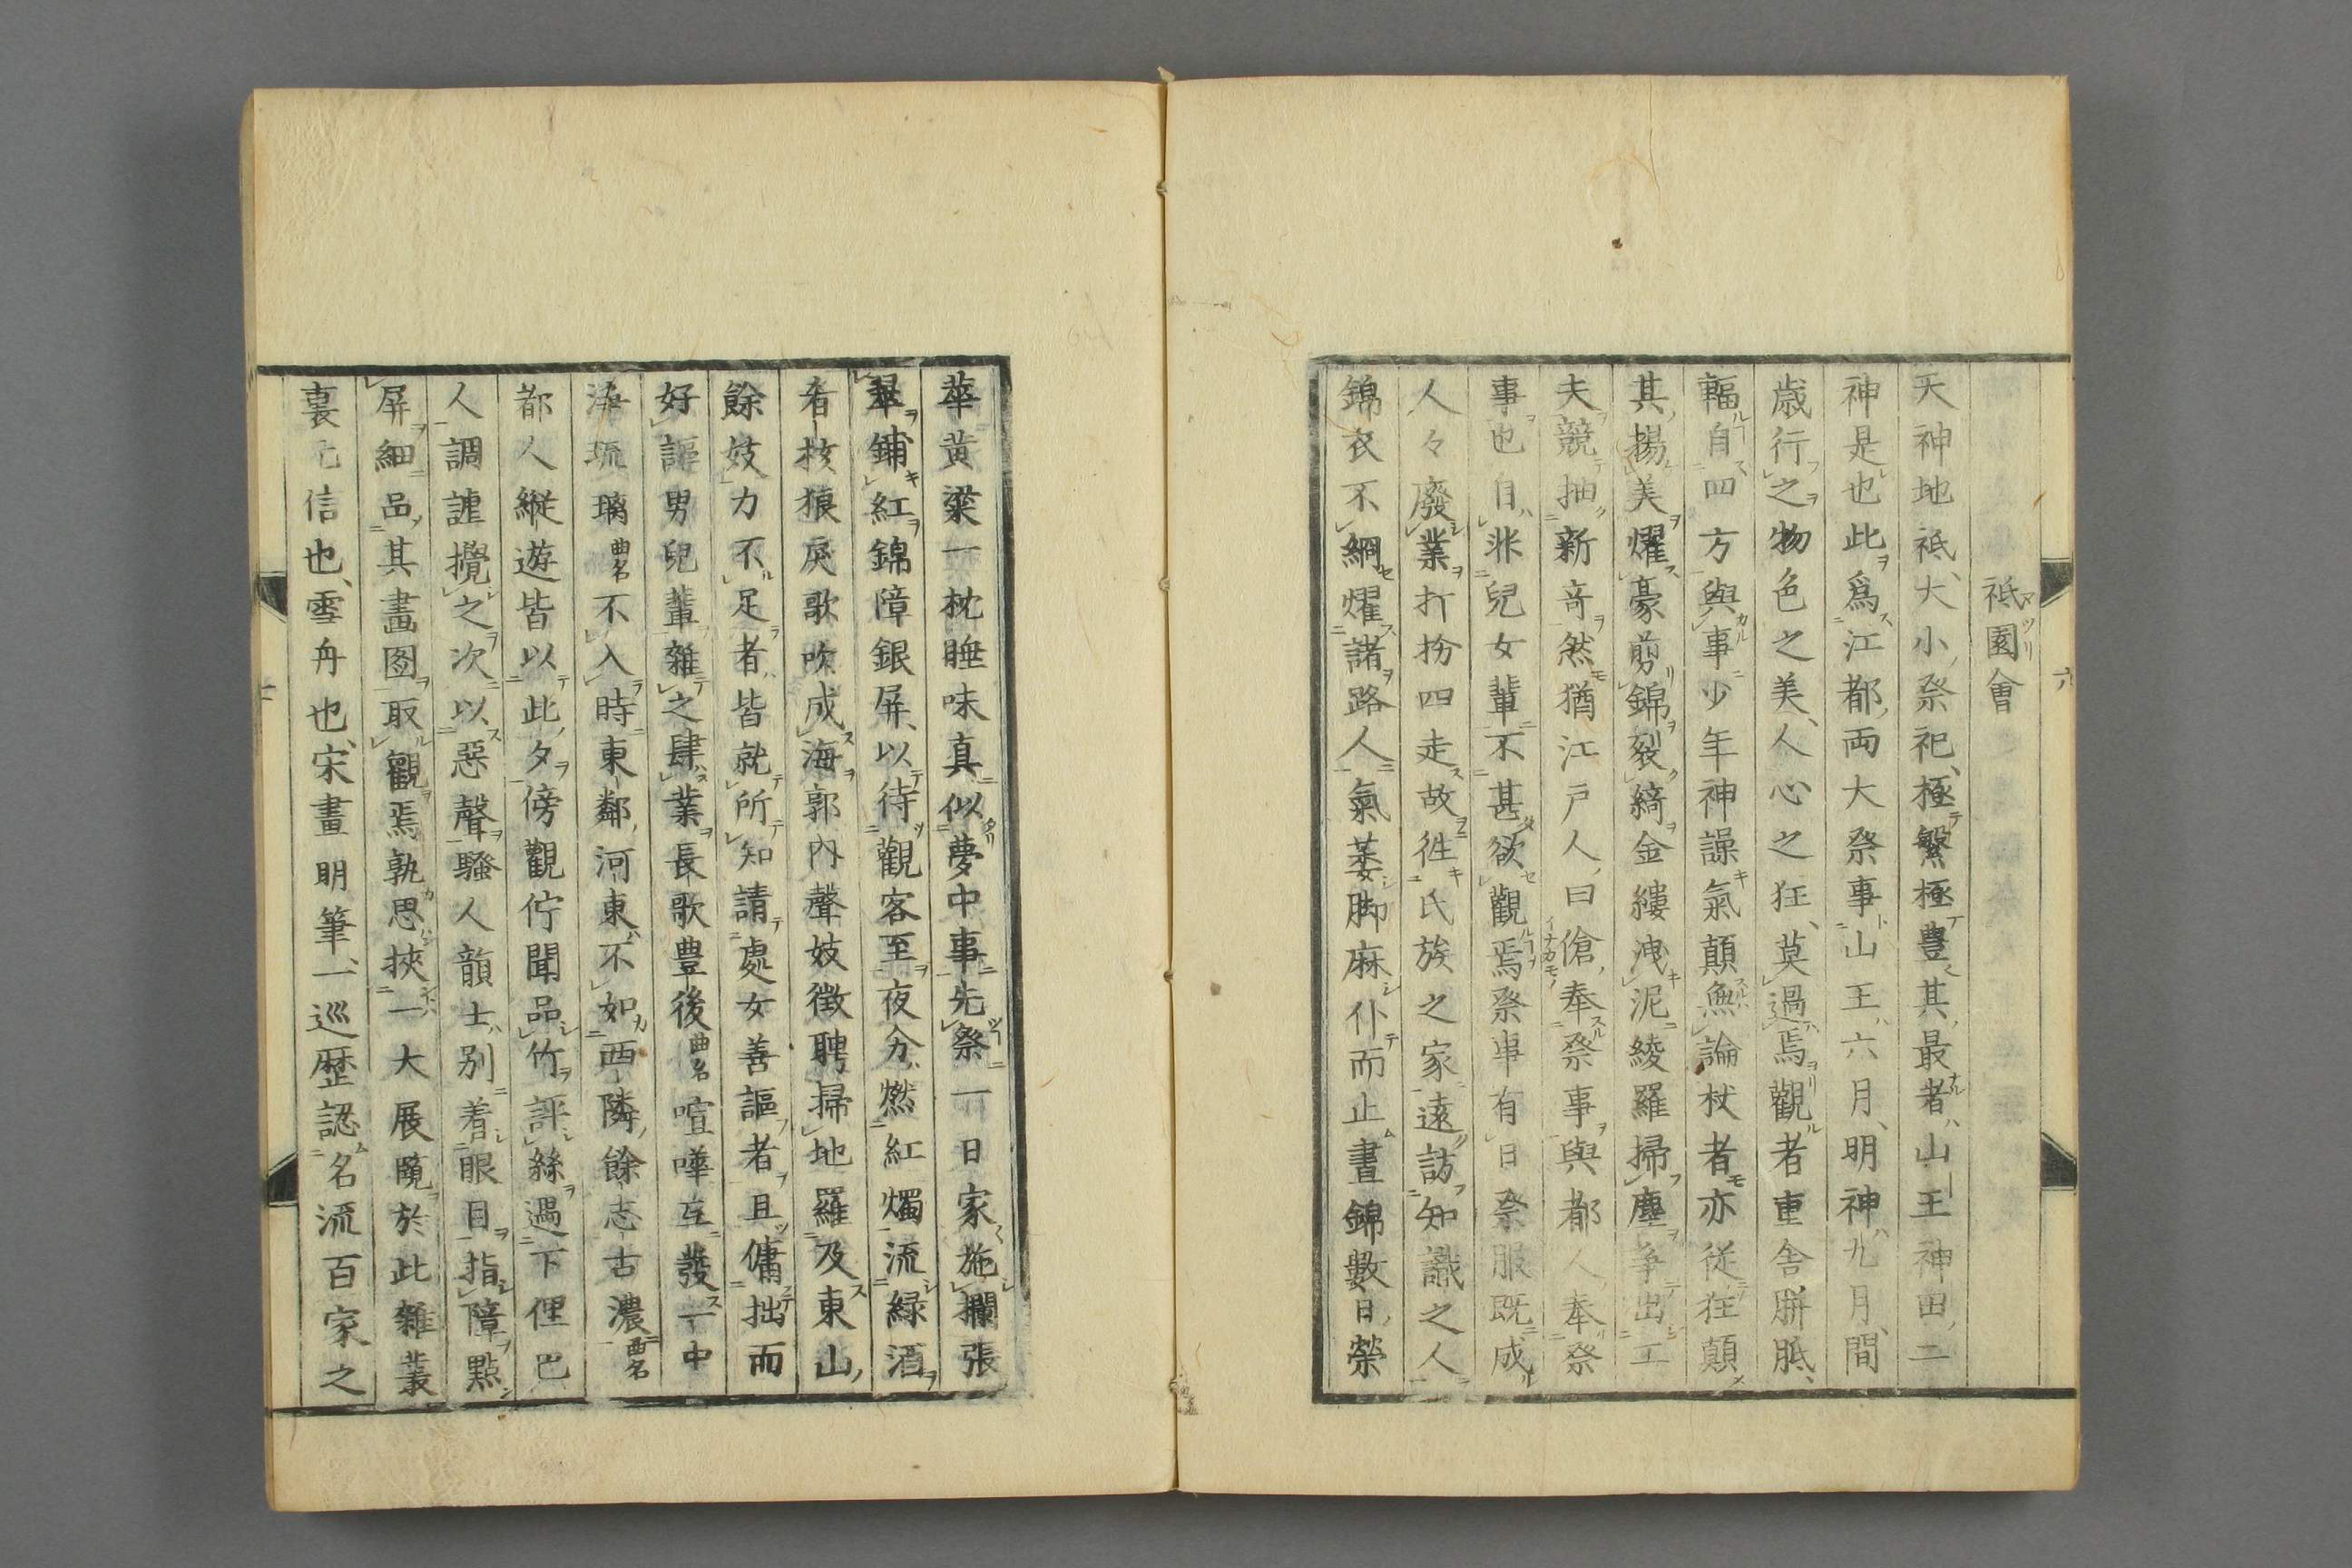 六
祗園會
天神地祗、大小祭祀、極繁極豊其最者山王神田二
神是也此爲江都両大祭事山王六月、明神九月、間
歳行之物色之美、人心之狂、莫過焉觀者重舎胼胝、
輻自四方與事少年神譟氣顛無論杖者亦従狂顛
其揚美燿豪剪錦裂綺金縷洩泥綾羅掃塵争出工
夫競抽新竒然猶江戸人曰傖奉祭事與都人奉祭
事也自非兒女輩不甚欲觀焉祭事有日祭服既成
人々廢業打扮四走故徃氏族之家遠訪知識之人
錦衣不絅燿諸路人氣萎脚麻仆而止晝錦數日榮
華黄粱一枕睡味真似夢中事先祭一日家施欄張
翠鋪紅錦障銀屏、以待觀客至夜分燃紅燭流緑酒
肴核狼戻歌吹成海郭内聲妓徴聘掃地羅及東山
餘妓力不足者皆就所知請處女善謳者且傭拙而
好謳男兒輩雑之肆業長歌豊後曲名喧嘩互發一中
浄琉璃曲名不入時東鄰河東不如西隣餘志古濃曲名
都人縦遊皆以此夕傍觀佇聞品竹評絲過下俚巴
人調謔攪之次以惡聲騒人韻士別着眼目指障點
屏細品其畫图取觀焉孰思挾一大展覧於此雑叢
裏元信也、雪舟也、宋畫明筆、一巡歴認名流百家之